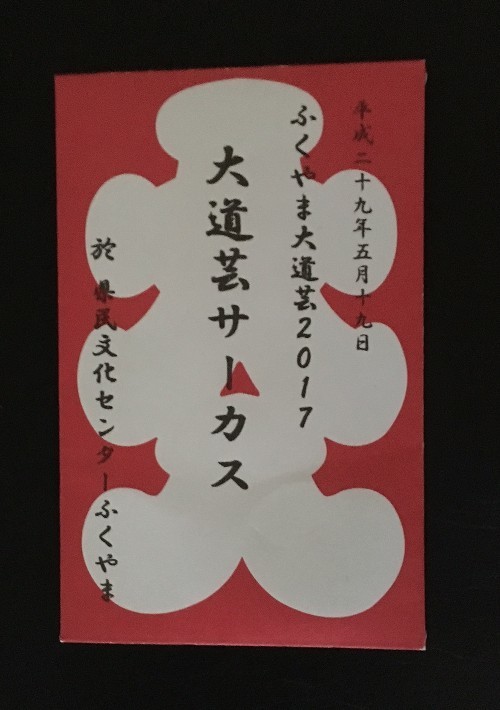 平成二十九年五月十九日
ふくやま大道芸2017
大道芸サーカス
於 県民文化センターふくやま